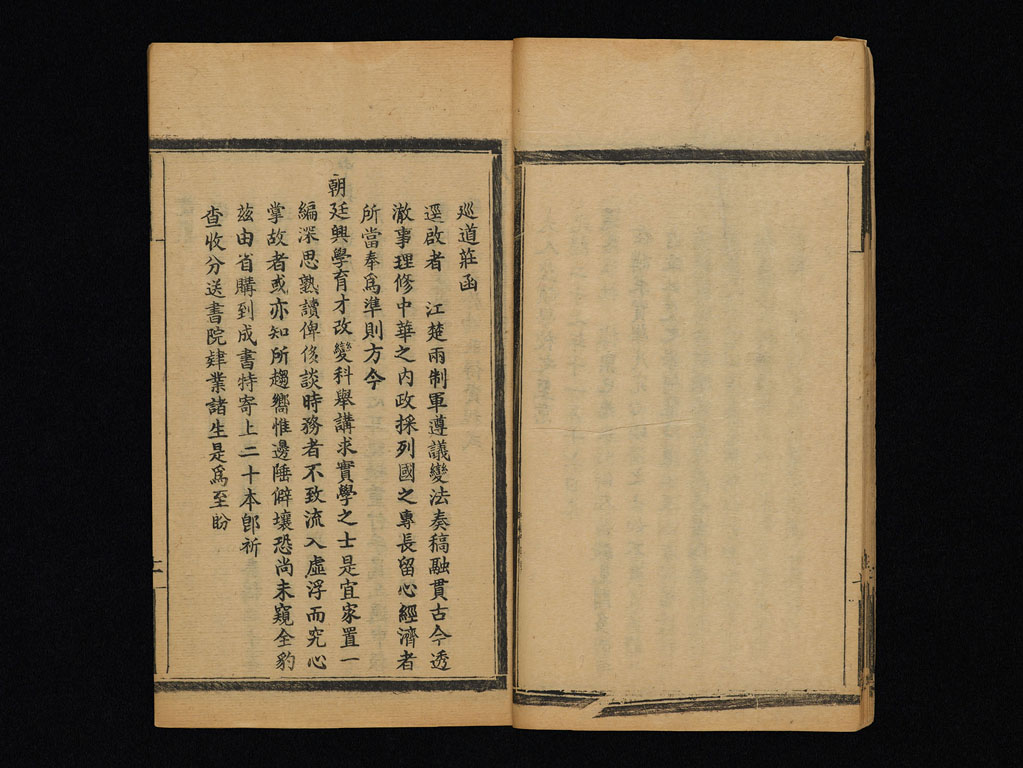 巡道莊函
逕啟者　江楚兩制軍遵議變法奏稿融貫古今透
澈事理修中華之內政採列國之專長留心經濟者
所當奉爲準則方今
朝廷興學育才改變科舉講求實學之士是宜家置一
編深思熟讀俾侈談時務者不致流入虛浮而究心
掌故者或亦知所趨嚮惟邊陲僻壤恐尚未窺全豹
茲由省購到成書特寄上二十本卽祈
查收分送書院肄業諸生是爲至盼